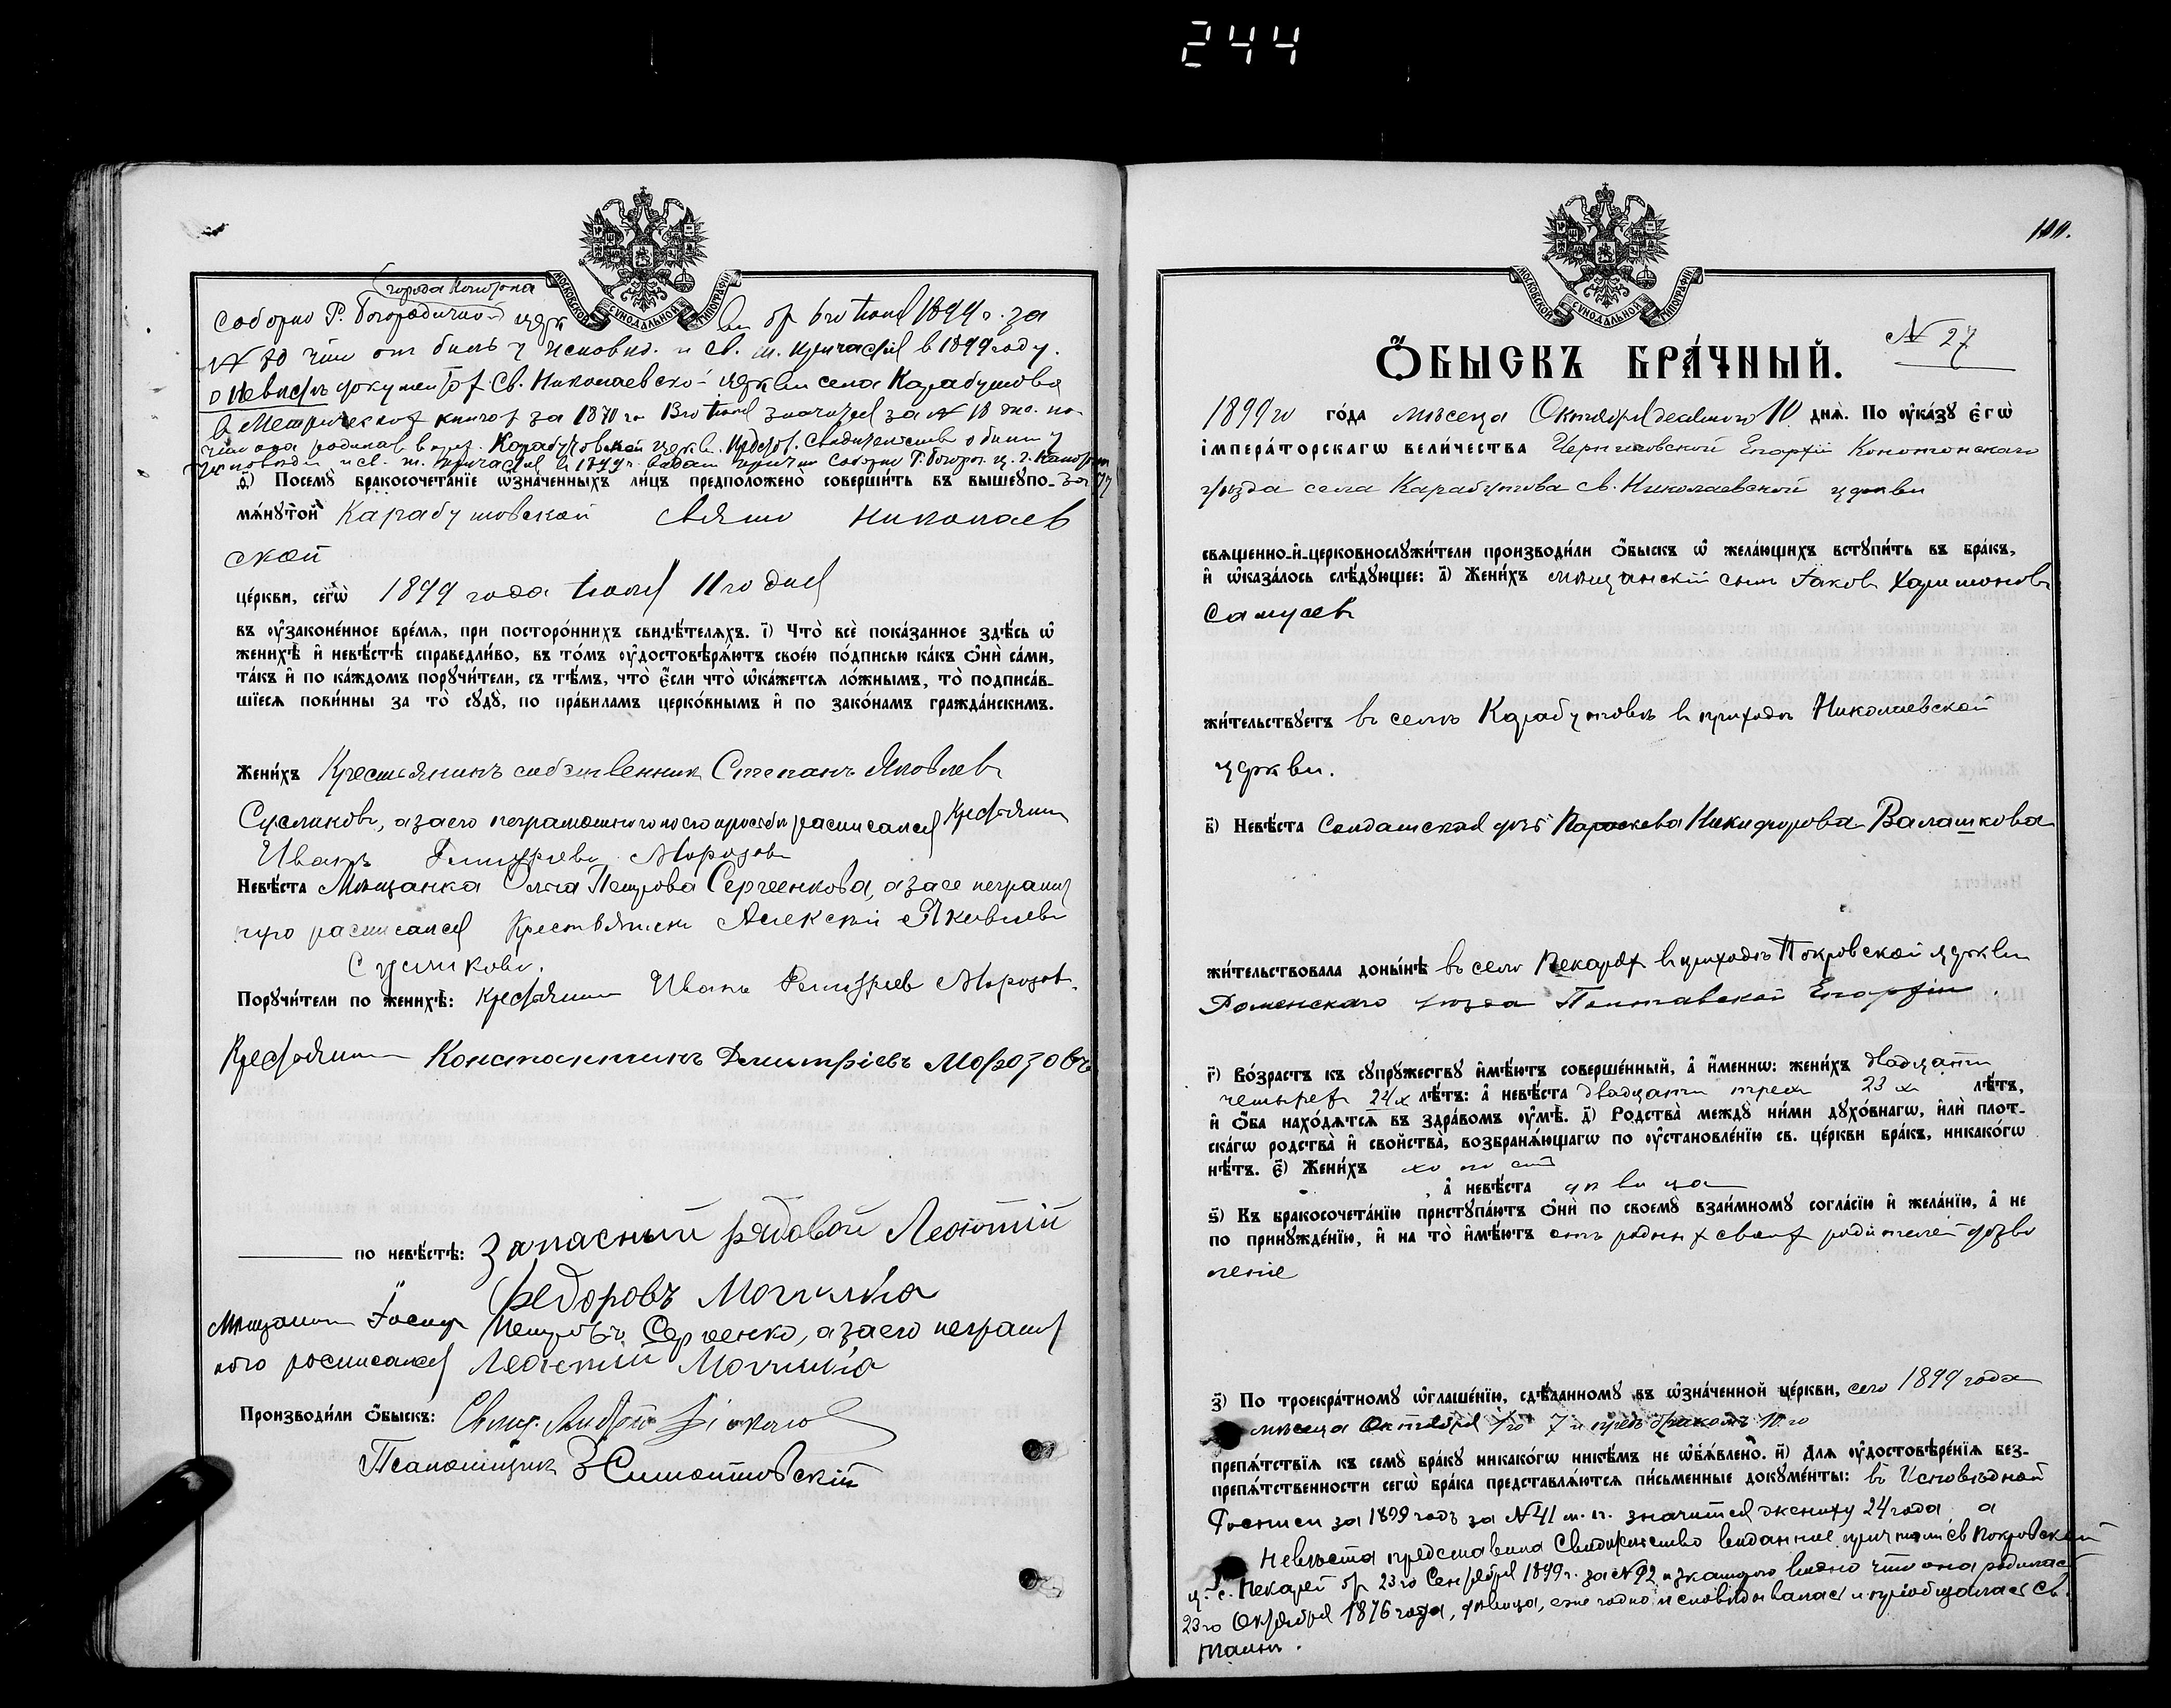 244
МОСКОВСКОЙ СѴНОДАЛЬНОЙ ТИПОГРАФІИ
города Конотопа
Соборно Р. Богородичной церк 1899 г. за
№ 70 что он былъ у исповѣд. и св. т. причастія в 1899 году.
о невѣстѣ документ Св. Николаевской церкви села Карабутова
в Метрических книгах за 1870 г. значится за № 18
она родилась Карабутовской церкви. Свидѣтельство о бытіи у
исповѣди и св. т. причастія в 1899 г. Соборно Р. Богор. ц. г. Конотопа
за 77
ѳ҃) Посемꙋ̀ бракосочета́нїе ѡ҆зна́ченныхъ ли́цъ предположено̀ соверши́ть въ вышеꙋпо-
мѧ́нꙋтой Карабутовской Свято Николаев
ской
це́ркви, сегѡ̀ 1899 года 11 го дня
въ ᲂу҆законе́нное вре́мѧ, при посторо́ннихъ свидѣ́телѧхъ. і҃) Что̀ всѐ пока́занное здѣ́сь ѡ҆
женихѣ̀ и҆ невѣ́стѣ справедли́во, въ то́мъ ᲂу҆достовѣрѧ́ютъ свое́ю по́дписью ка́къ ѻ҆нѝ са́ми,
та́къ и҆ по ка́ждомъ порꙋчи́тели, съ тѣ́мъ, что̀ є҆́сли что̀ ѡ҆ка́жетсѧ ло́жнымъ, то̀ подписа́в-
шїесѧ пови́нны за то̀ сꙋдꙋ̀, по пра́виламъ церко́внымъ и҆ по зако́намъ гражда́нскимъ.
Жени́хъ Крестьянинъ собственник Степанъ Яковлевъ
Сусликовъ, а за его неграмотного по его просьбѣ расписался Крестьянин
Иванъ Дмитріевъ Морозовъ
Невѣ́ста Мѣщанка Ольга Петрова Сергеенкова, а за ее неграмот
ную расписался Крестьянинъ Алексѣй Яковлевъ
Сусликовъ.
Порꙋчи́тели по женихѣ̀: Крестьянин Иванъ Дмитріев Морозов.
Крестьянин Константинъ Дмитріевъ Морозовъ
по невѣ́стѣ: Запасный рядовой Леонтій
Федоровъ Могилка
Мѣщанин Іосиф Петровъ Сергеенко, а за его неграмот
ного росписался Леонтий Могилка
Производи́ли ѻ҆́быскъ: Свящ. Андрей
Псаломщик В Симонтовскій
100.
МОСКОВСКОЙ СѴНОДАЛЬНОЙ ТИПОГРАФІИ
№ 27
Ѻ҆́БЫСКЪ БРА́ЧНЫЙ.
1899 го го́да мѣсяца Октября десятого 10 днѧ̀. По ᲂу҆ка́зꙋ є҆гѡ̀
і҆мпера́торскагѡ вели́чества Черниговской Епархіи Конотопскаго
уѣзда села Карабутова Св. Николаевской церкви
свѧще́нно-и҆-церковнослꙋжи́тели производи́ли ѻ҆́быскъ ѡ҆ жела́ющихъ встꙋпи́ть въ бра́къ,
и҆ ѡ҆каза́лось слѣ́дꙋющее: а҃) Жени́хъ мѣщанскій сынъ Іаковъ Харитоновъ
Самусевъ
жи́тельствꙋетъ въ селѣ Карабутовѣ в приходѣ Николаевской
церкви.
в҃) Невѣ́ста Солдатская дочь Параскева Никифорова Валашкова
жи́тельствовала доны́нѣ въ селѣ Пекарях в приходѣ Покровской церкви
Роменскаго уѣзда Полтавской Епархіи.
г҃) Во́зрастъ къ сꙋпрꙋ́жествꙋ и҆мѣ́ютъ соверше́нный, а҆ и҆́меннѡ: жени́хъ двадцати
четырех 24 х лѣ́тъ: а҆ невѣ́ста двадцати трех 23 х лѣ́тъ,
и҆ ѻ҆́ба нахо́дѧтсѧ въ здра́вомъ ᲂу҆мѣ̀. д҃) Родства̀ междꙋ̀ ни́ми дꙋхо́внагѡ, и҆лѝ плот-
ска́гѡ родства̀ и҆ свойства̀, возбранѧ́ющагѡ по ᲂу҆становле́нїю св. це́ркви бра́къ, никако́гѡ
нѣ́тъ. є҃) Жени́хъ холостъ
, а҆ невѣ́ста дѣвица
ѕ҃) Къ бракосочета́нїю пристꙋпа́ютъ ѻ҆нѝ по своемꙋ̀ взаи́мномꙋ согла́сїю и҆ жела́нїю, а҆ не
по принꙋжде́нїю, и҆ на то̀ и҆мѣ́ютъ отъ родных своих родителей дозво
леніе
з҃) По троекра́тномꙋ ѡ҆глаше́нїю, сдѣ́ланномꙋ въ ѡ҆зна́ченной це́ркви, сего 1899 года
мѣсяца Октября 1го 7 и пред браком 10 го
препѧ́тствїѧ къ семꙋ̀ бра́кꙋ никако́гѡ никѣ́мъ не ѡ҆б̾ѧ́влено. и҃) Длѧ ᲂу҆достовѣре́нїѧ без-
препѧ́тственности сегѡ̀ бра́ка представлѧ́ютсѧ пи́сьменные докꙋме́нты: въ Исповѣдной
Росписи за 1899 годъ за № 41 м. п. значится жениху 24 года а
Невѣста представила Свидѣтельство виданное причтом св Покровской
ц. с. Пекарей от 23 го Сентября 1899 г. за № 92 изкоторого видно что она родилась
23 го Октября 1876 года, дѣвица, ежегодно исповѣдывалась и пріобщалась Св.
таинъ.